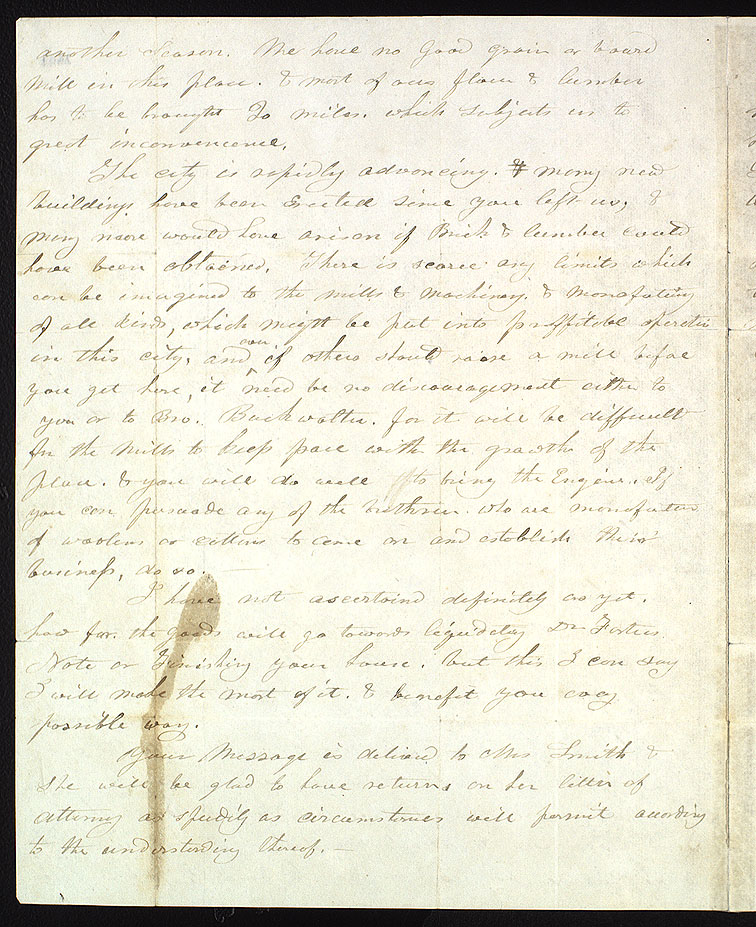 another Season. We have no good grain or board
Mill in this place. & most of our flour & lumber
has to be brought 20 miles. which subjects us to
great inconvenience.
The city is rapidly advancing. many new
buildings have been Erected since you left us, &
many more would have arisen if Brick & lumber could
have been obtained. There is scarce any limits which
can be imagined to the mills & machinery. & manufactury
of all kinds, which might be put into proffitable operation
in this city, and even if others should raise a mill before
you get here, it need be no discouragement either to
you or to Bro. Buckwalter. for it will be difficult
for the Mills to keep pace with the growth of the
place. & you will do well to bring the Engine. If
you can persuade any of the brethren who are manufacturers
of woolens or cottons to come on and establish their
business, do so.
I have not ascertained definitely as yet.
how far the goods will go towards liquidating Dr Fosters
Note or Finishing your house. but this I can say
I will make the most of it. & benefit you evey
possible way.
Your Message is delivered to Mrs Smith &
she will be glad to have returns on her letter of
attorney as speedily as circumstances will permit acording
to the understanding thereof. —